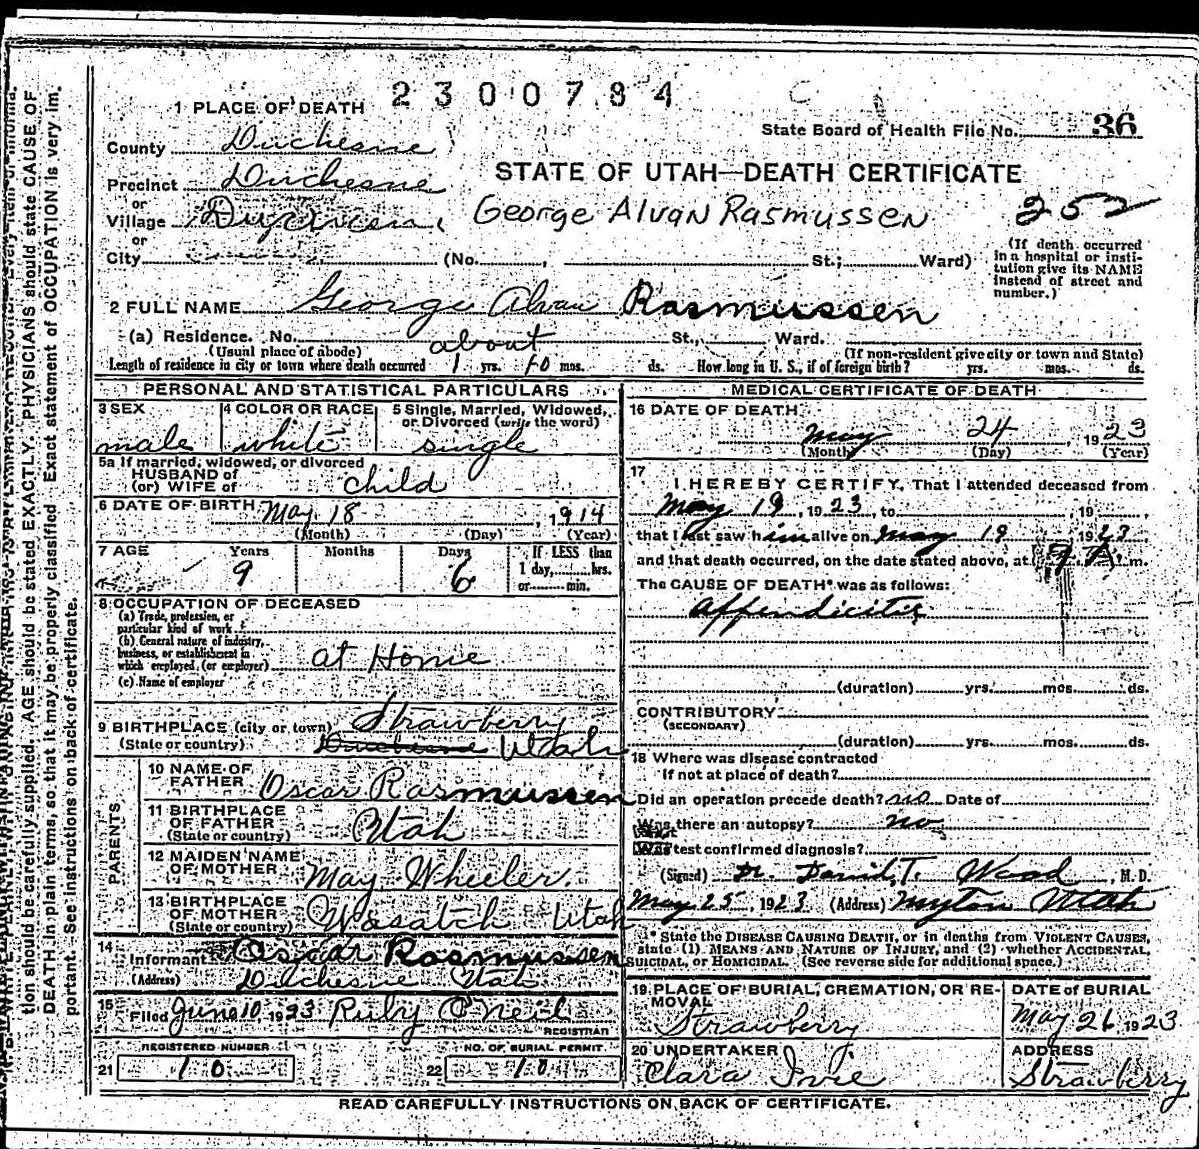 2300784
1 PLACE OF DEATH
State Board of Health File No. 36
County Duchesne
STATE OF UTAH—DEATH CERTIFICATE
Precinct Duchesne
or
Village
George Alvan Rasmussen 252
or
City (No. , St.; Ward)
(If death occurred
in a hospital or insti-
tution give its NAME
instead of street and
number.)
2 FULL NAME George Alvan Rasmussen
(a) Residence. No. St., Ward.
(Usual place of abode) about (If non-resident give city or town and State)
Length of residence in city or town where death occurred 1 yrs. 10 mos. ds. How long in U. S., if of foreign birth? yrs. mos. ds.
PERSONAL AND STATISTICAL PARTICULARS
3 SEX male
4 COLOR OR RACE white
5 Single, Married, Widowed,
or Divorced (write the word)
single
5a If married, widowed, or divorced
HUSBAND of
(or) WIFE of child
6 DATE OF BIRTH May 18, 1914
(Month) (Day) (Year)
7 AGE Years Months Days If LESS than
9 6 1 day, hrs.
or min.
8 OCCUPATION OF DECEASED
(a) Trade, profession, or
particular kind of work
(b) General nature of industry,
business, or establishment in
which employed, (or employer) at Home
(c) Name of employer
9 BIRTHPLACE (city or town) Strawberry
(State or country) Duchesne Utah
PARENTS
10 NAME OF
FATHER Oscar Rasmussen
11 BIRTHPLACE
OF FATHER Utah
(State or country)
12 MAIDEN NAME
OF MOTHER May Wheeler
13 BIRTHPLACE
OF MOTHER Wasatch Utah
(State or country)
14
Informant Oscar Rasmussen
(Address) Duchesne Utah
15
Filed June 10, 1923 Ruby O'Neil
REGISTRAR
REGISTERED NUMBER
21 10
NO. OF BURIAL PERMIT
22 10
MEDICAL CERTIFICATE OF DEATH
16 DATE OF DEATH
May 24, 1923
(Month) (Day) (Year)
17
I HEREBY CERTIFY, That I attended deceased from
May 19, 1923, to , 19 ,
that I last saw him alive on May 19 1923
and that death occurred, on the date stated above, at m.
The CAUSE OF DEATH* was as follows:
Appendicitis
(duration) yrs. mos. ds.
CONTRIBUTORY
(SECONDARY)
(duration) yrs. mos. ds.
18 Where was disease contracted
if not at place of death?
Did an operation precede death? no Date of
Was there an autopsy? no
Was test confirmed diagnosis?
(Signed) Dr. T. Wood, M. D.
May 25, 1923 (Address) Myton Utah
* State the DISEASE CAUSING DEATH, or in deaths from VIOLENT CAUSES,
state (1) MEANS AND NATURE OF INJURY, and (2) whether ACCIDENTAL,
SUICIDAL, or HOMICIDAL. (See reverse side for additional space.)
19 PLACE OF BURIAL, CREMATION, OR RE-
MOVAL
Strawberry
DATE of BURIAL
May 26 1923
20 UNDERTAKER
Clara Ivie
ADDRESS
Strawberry
READ CAREFULLY INSTRUCTIONS ON BACK OF CERTIFICATE.
tion should be carefully supplied. AGE should be stated EXACTLY. PHYSICIANS should state CAUSE OF
DEATH in plain terms, so that it may be properly classified. Exact statement of OCCUPATION is very im-
portant. See instructions on back of certificate.